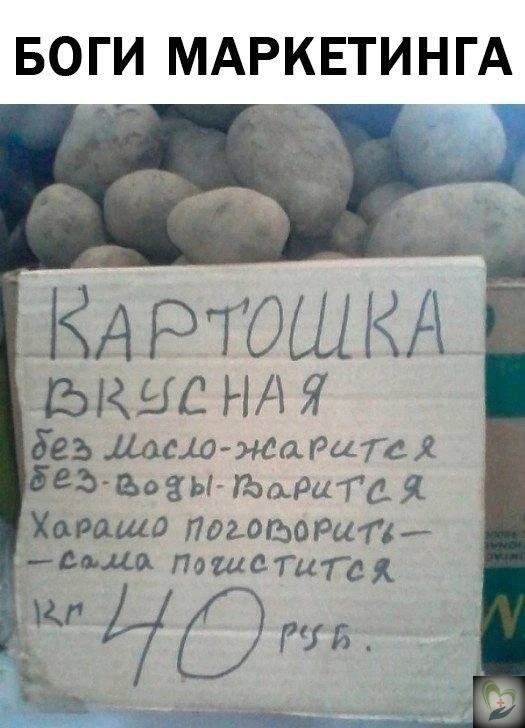 БОГИ МАРКЕТИНГА
КАРТОШКА
ВКУСНАЯ
без Масло-жарится
без-воды-варится
Харашо поговорить-
-сама почистится
кг 40 руб.